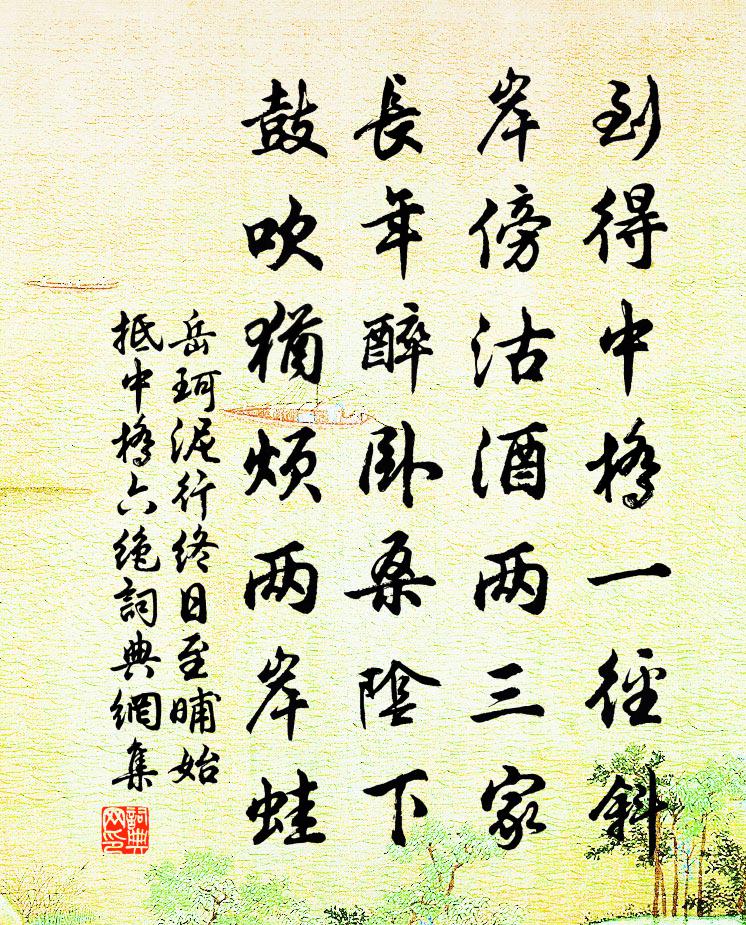 到得中橋一徑斜
岸傍沽酒两三家
長年醉卧桑陰下
鼓吹猶煩两岸蛙
岳珂泥行终日至晡始
抵中橋六绝詞典網集
詞典网印